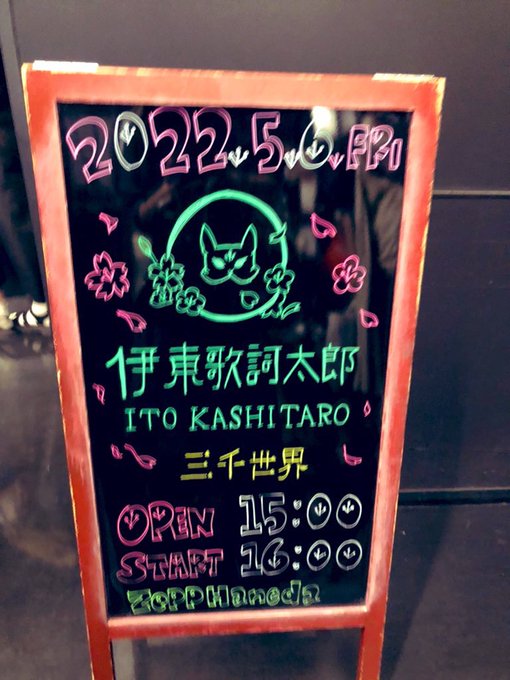 2022.5.6.FRI
伊東歌詞太郎
ITO KASHITARO
三千世界
OPEN 15:00
START 16:00
Zepp Haneda